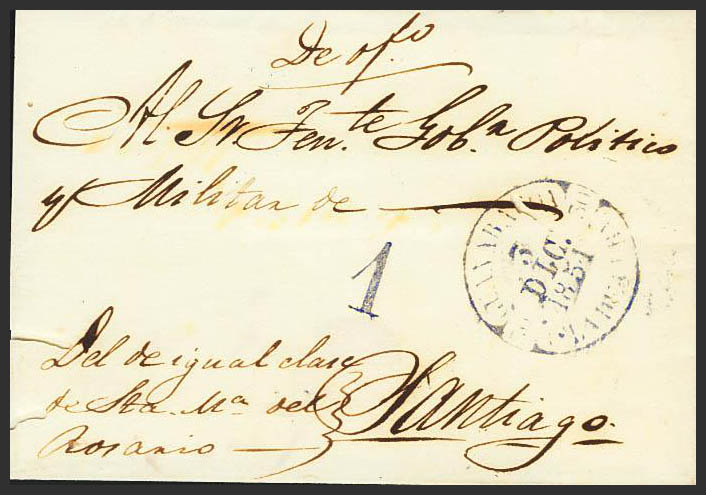 De of.º
Al Sr. Ten.te Gob.n Politico
y Militar de
5
DIC.
1851
1
Del de igual clase
de Sta. Ma. del
Rosario
Santiago.